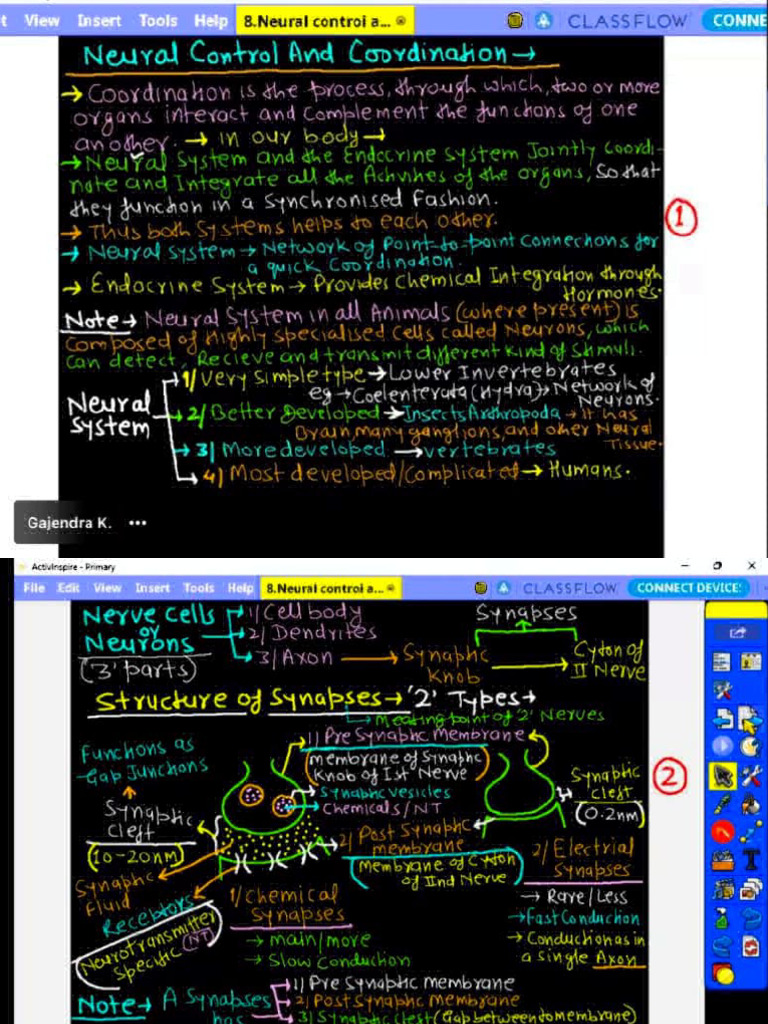 View Insert Tools Help 8.Neural control a... CLASSFLOW CONNE
Neural Control And Coordination →
→ Coordination is the process, through which, two or more
organs interact and complement the functions of one
another. → in our body →
→ Neural System and the Endocrine System Jointly Coordi-
nate and Integrate all the Activities of the organs, So that
they function in a Synchronised Fashion.
→ Thus both Systems helps to each other.
→ Neural System → Network of Point-to-point Connections for
a quick Coordination.
→ Endocrine System → Provides Chemical Integration through
Hormones.
Note → Neural System in all Animals (where present) is
Composed of highly specialised Cells called Neurons, which
Can detect, Recieve and transmit different kind of Stimuli.
Neural System
1/ Very Simple type → Lower Invertebrates
eg → Coelenterata (Hydra) → Network of
Neurons.
2/ Better Developed → Insects Arthropoda → it has
Brain, many ganglions, and other Neural
Tissue.
3/ More developed → vertebrates
4/ Most developed/Complicated → Humans.
1
Gajendra K. •••
ActivInspire - Primary
File Edit View Insert Tools Help 8.Neural control a... CLASSFLOW CONNECT DEVICE
Nerve Cells
or
Neurons
('3' parts)
1/ Cell body
2/ Dendrites
3/ Axon → Synaptic Knob → Cyton of II Nerve
Synapses
Structure of Synapses → '2' Types →
→ Meeting point of '2' Nerves
1) Pre Synaptic Membrane
membrane of Synaptic
Knob of Ist Nerve
Synaptic vesicles
Chemicals/NT
2) Post Synaptic
membrane
Membrane of Cyton
of IInd Nerve
Functions as
Gap Junctions
Synaptic
Cleft
(10-20nm)
Synaptic
Fluid
Receptors
Neurotransmitter
Specific (NT)
1/ Chemical
Synapses
→ main/more
→ Slow Conduction
Synaptic
Cleft
(0.2nm)
2/ Electrial
Synapses
→ Rare/Less
→ Fast Conduction
→ Conduction as in
a Single Axon
2
Note → A Synapses has
1) Pre Synaptic membrane
2) Post Synaptic Membrane
3) Synaptic Cleft (Gap between to membrane)